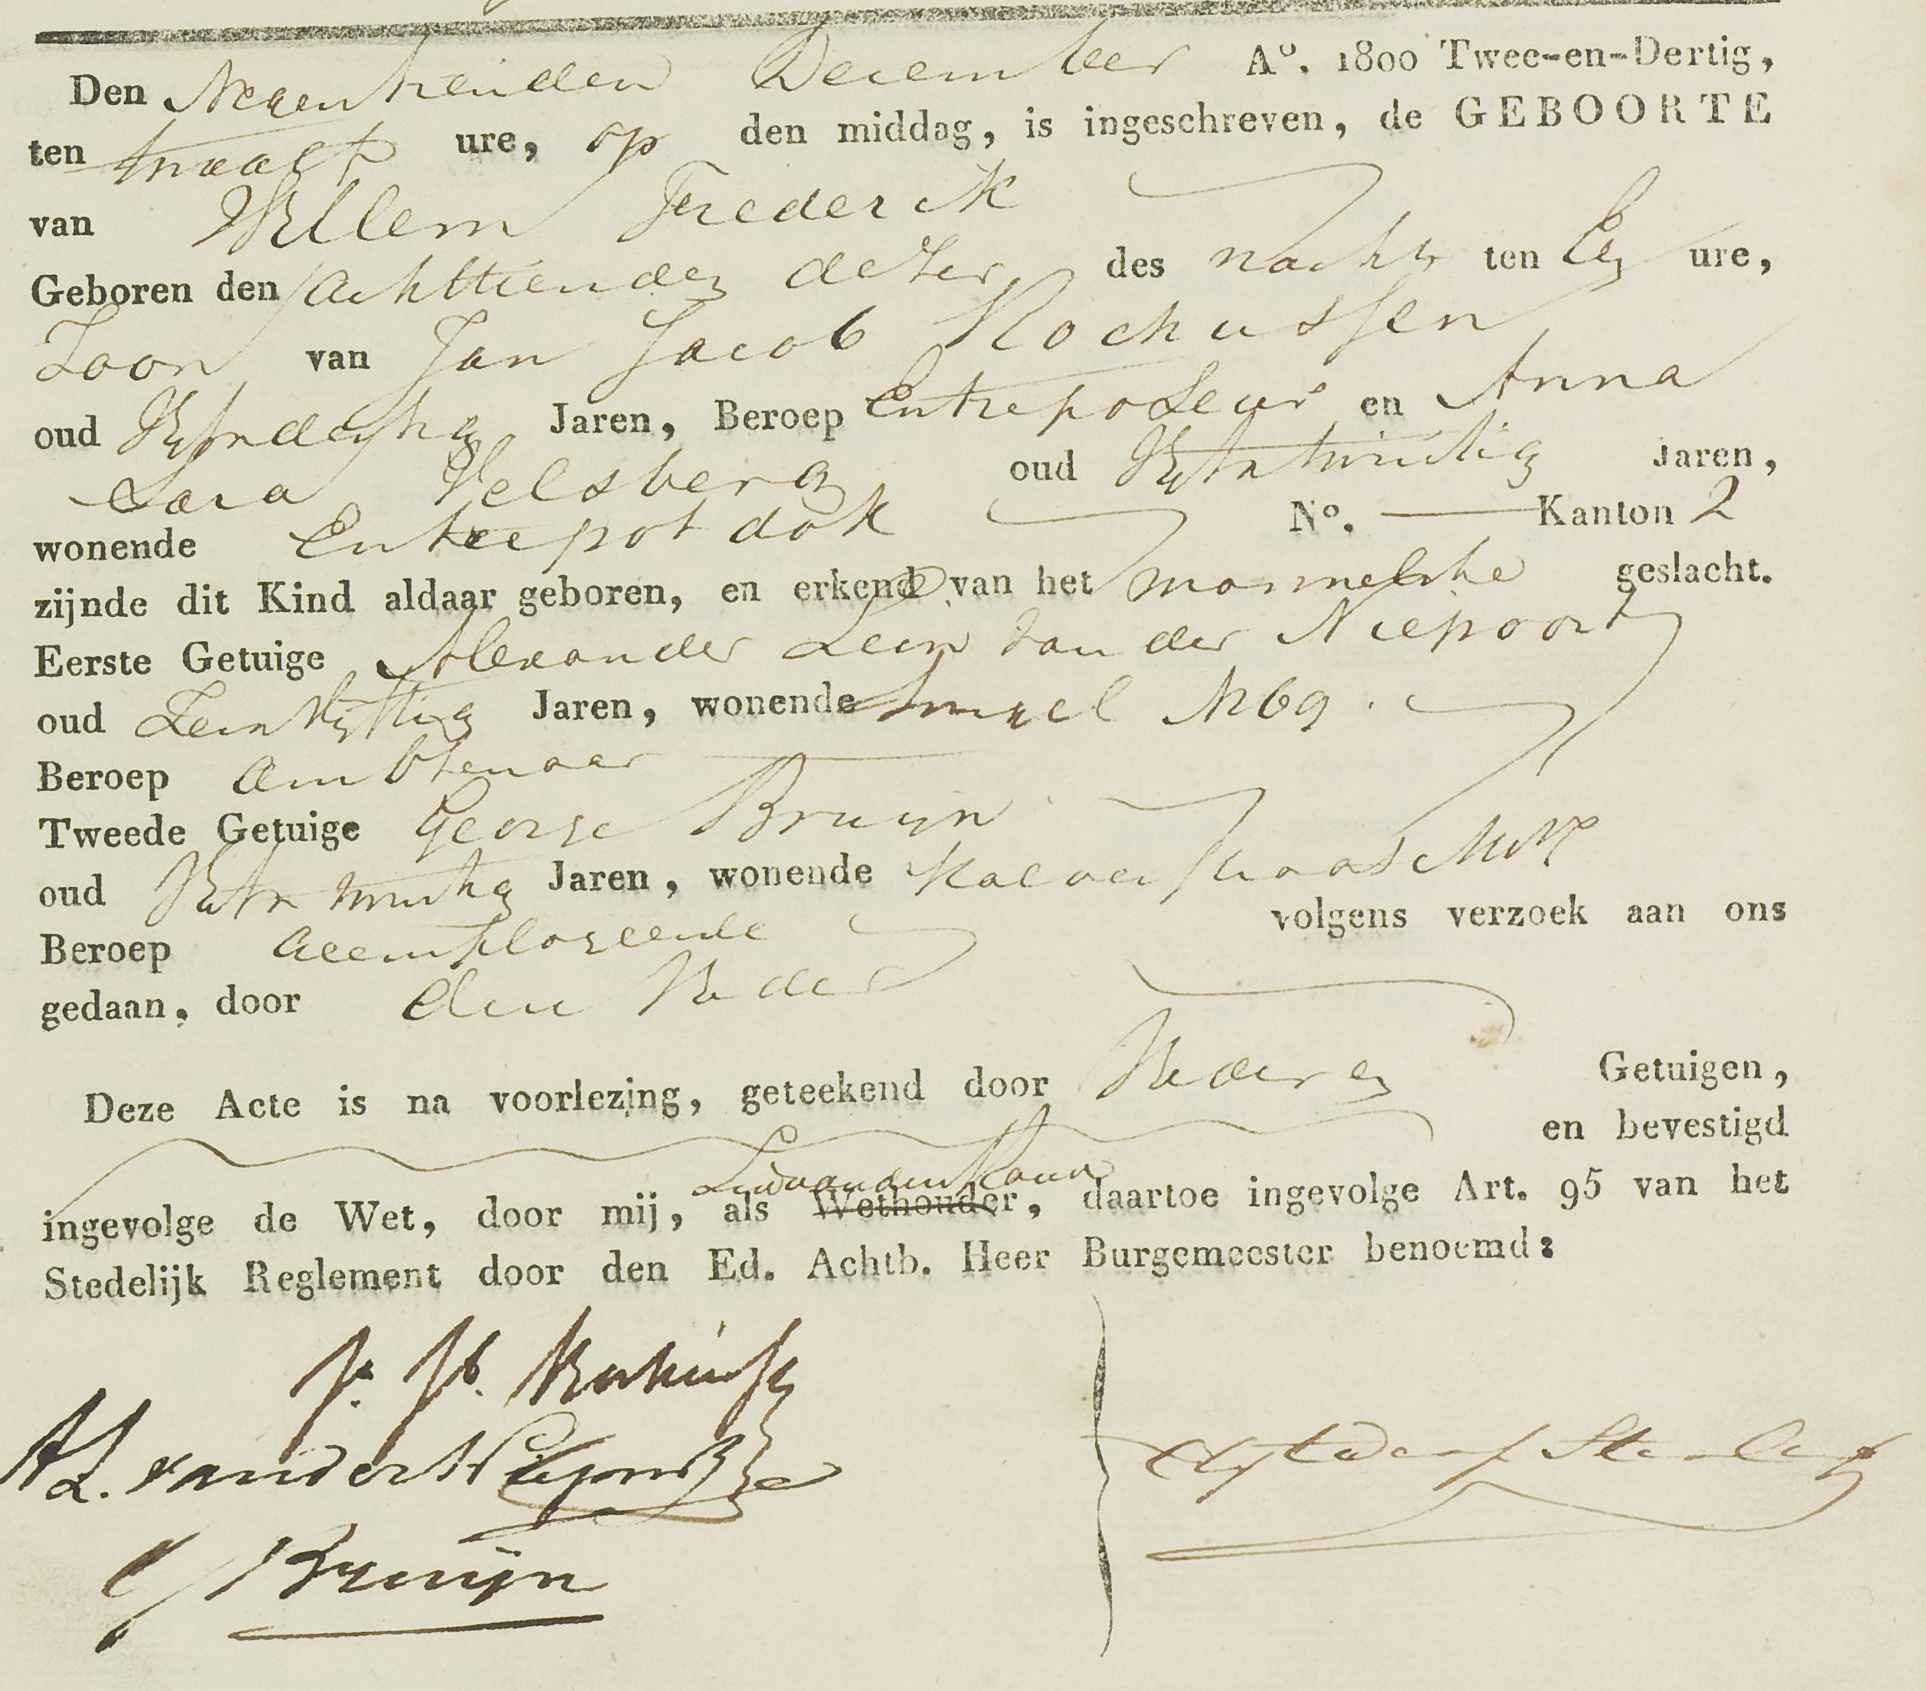 Den Negentienden December A°. 1800 Twee-en-Dertig,
ten twaalf ure, op den middag, is ingeschreven, de GEBOORTE
van Willem Frederik
Geboren den Achttienden dezer des nachts ten Een ure,
Zoon van Jan Jacob Rochussen
oud Vijfendertig Jaren, Beroep Entreposeur en Anna
Sara Velsberg oud jaren,
wonende Entrepotdok N°. — Kanton 2
zijnde dit Kind aldaar geboren, en erkend van het mannelijke geslacht.
Eerste Getuige Alexander Leon van der Niepoort
oud Jaren, wonende Singel N 69.
Beroep Ambtenaar
Tweede Getuige George Bruijn
oud Jaren, wonende Kalverstraat
Beroep Geemploieerde volgens verzoek aan ons
gedaan, door den Vader
Deze Acte is na voorlezing, geteekend door Vader en Getuigen,
en bevestigd
Lid van den Raad
ingevolge de Wet, door mij, als Wethouder, daartoe ingevolge Art. 95 van het
Stedelijk Reglement door den Ed. Achtb. Heer Burgemeester benoemd:
J. Jb. Rochussen
A L. van der Niepoort
G Bruijn